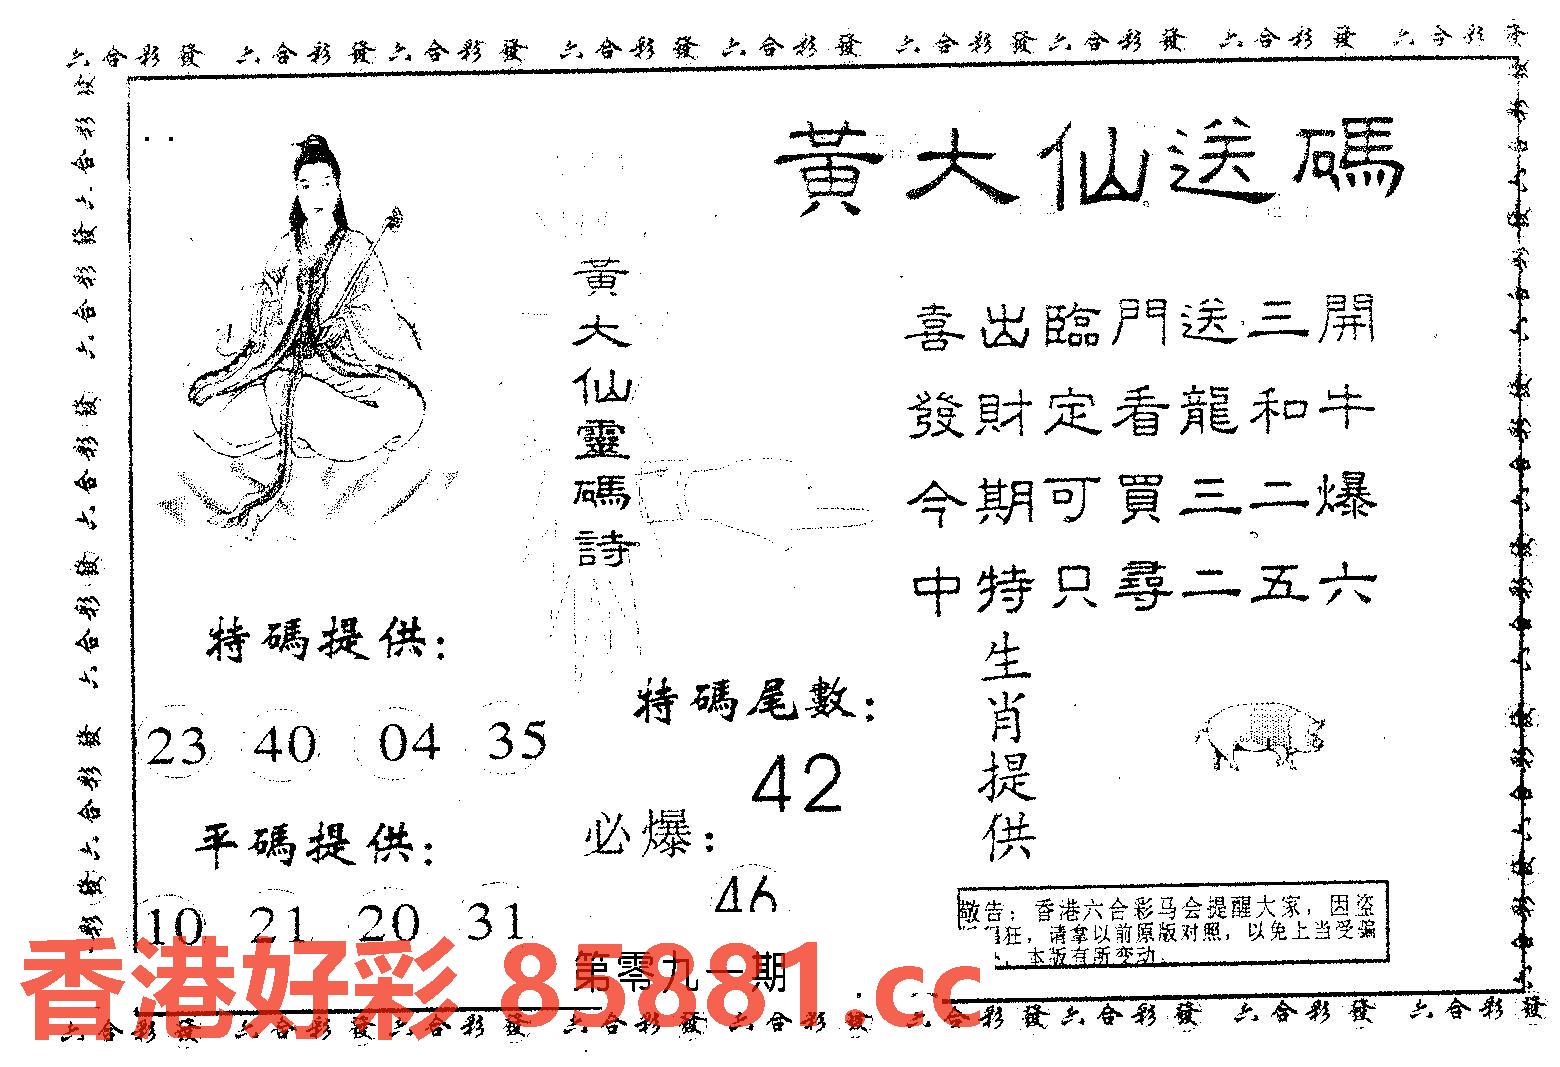 六合彩發 六合彩發 六合彩發 六合彩發 六合彩發 六合彩發 六合彩發 六合彩發 六合彩發
六合彩發 六合彩發 六合彩發 六合彩發 六合彩發
黃大仙送碼
黃大仙靈碼詩
喜出臨門送三開
發財定看龍和牛
今期可買三二爆
中特只尋二五六
特碼提供：
23 40 04 35
平碼提供：
10 21 20 31
特碼尾數：
42
必爆：
46
生肖提供
敬告：香港六合彩马会提醒大家，因盗
狂，请拿以前原版对照，以免上当受骗
，本版有所变动.
第零九一期
香港好彩 85881.cc
六合彩發 六合彩發 六合彩發 六合彩發 六合彩發 六合彩發 六合彩發 六合彩發 六合彩發